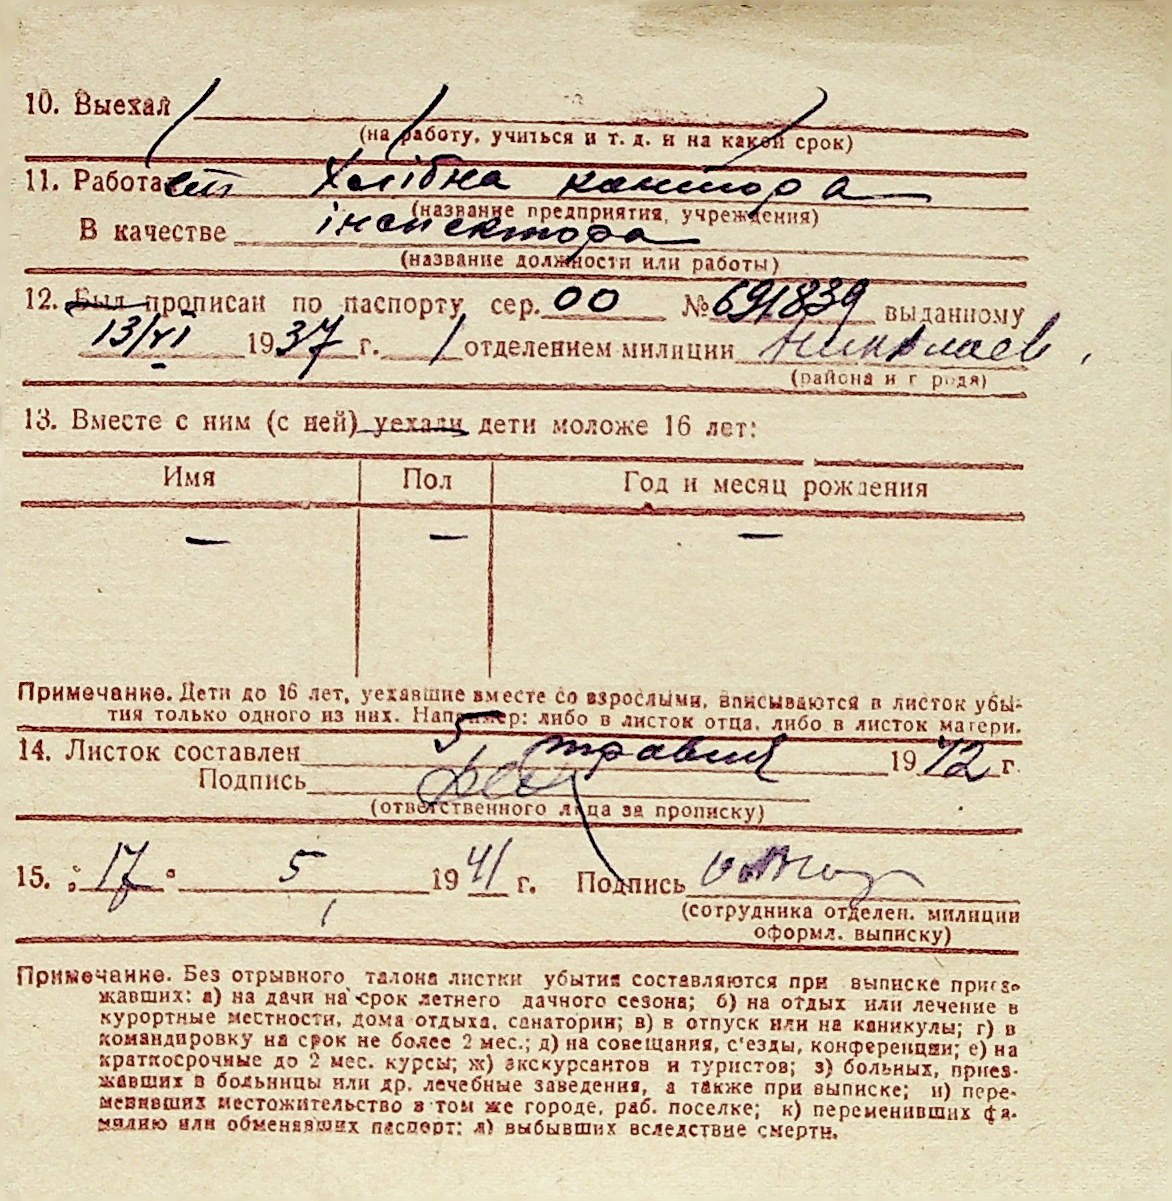 10. Выехал
(на работу, учиться и т. д. и на какой срок)
11. Работает Хлібна контора
(название предприятия, учреждения)
В качестве інспектора
(название должности или работы)
12. Был прописан по паспорту сер. 00 № 691839 выданному
13/VI 1937 г. 1 отделением милиции Николаев
(района и г родя)
13. Вместе с ним (с ней) уехали дети моложе 16 лет:
Имя Пол Год и месяц рождения
— — —
Примечание. Дети до 16 лет, уехавшие вместе со взрослыми, вписываются в листок убы-
тия только одного из них. Например: либо в листок отца, либо в листок матери.
14. Листок составлен 5 травня 19 г.
Подпись
(ответственного лица за прописку)
15. "17" 5 1941 г. Подпись
(сотрудника отделен. милиции
оформл. выписку)
Примечание. Без отрывного талона листки убытия составляются при выписке приез-
жавших: а) на дачи на срок летнего дачного сезона; б) на отдых или лечение в
курортные местности, дома отдыха, санатории; в) в отпуск или на каникулы; г) в
командировку на срок не более 2 мес.; д) на совещания, с'езды, конференции; е) на
краткосрочные до 2 мес. курсы; ж) экскурсантов и туристов; з) больных, приез-
жавших в больницы или др. лечебные заведения, а также при выписке; и) пере-
менивших местожительство в том же городе, раб. поселке; к) переменивших фа-
милию или обменявших паспорт; л) выбывших вследствие смерти.